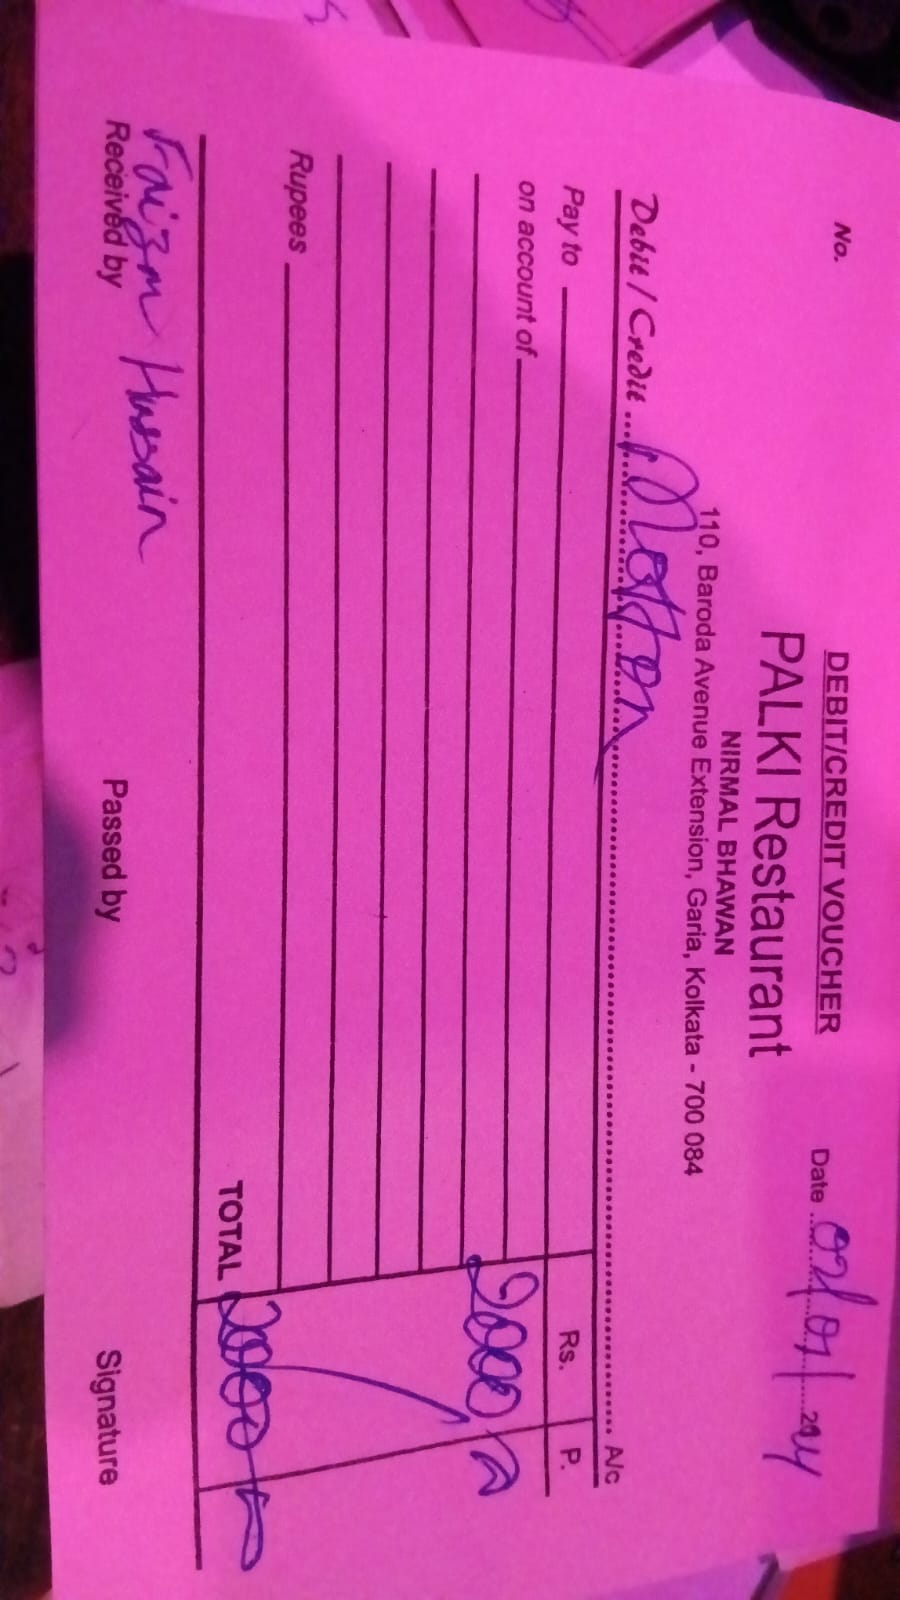 DEBIT/CREDIT VOUCHER
No.
Date 02/01/2024
PALKI Restaurant
NIRMAL BHAWAN
110, Baroda Avenue Extension, Garia, Kolkata - 700 084
Debit / Credit Motton A/c
Pay to Rs. P.
on account of 2000
Rupees
TOTAL 2000
Faizm Hussain
Received by Passed by Signature